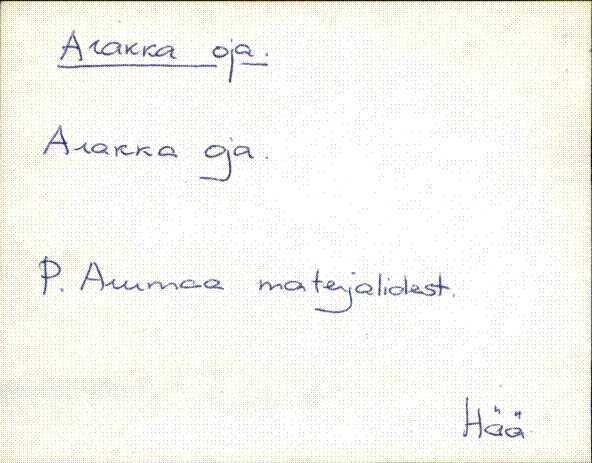 Arakka oja.
Arakka oja.
P. Arumaa materjalidest.
Hää